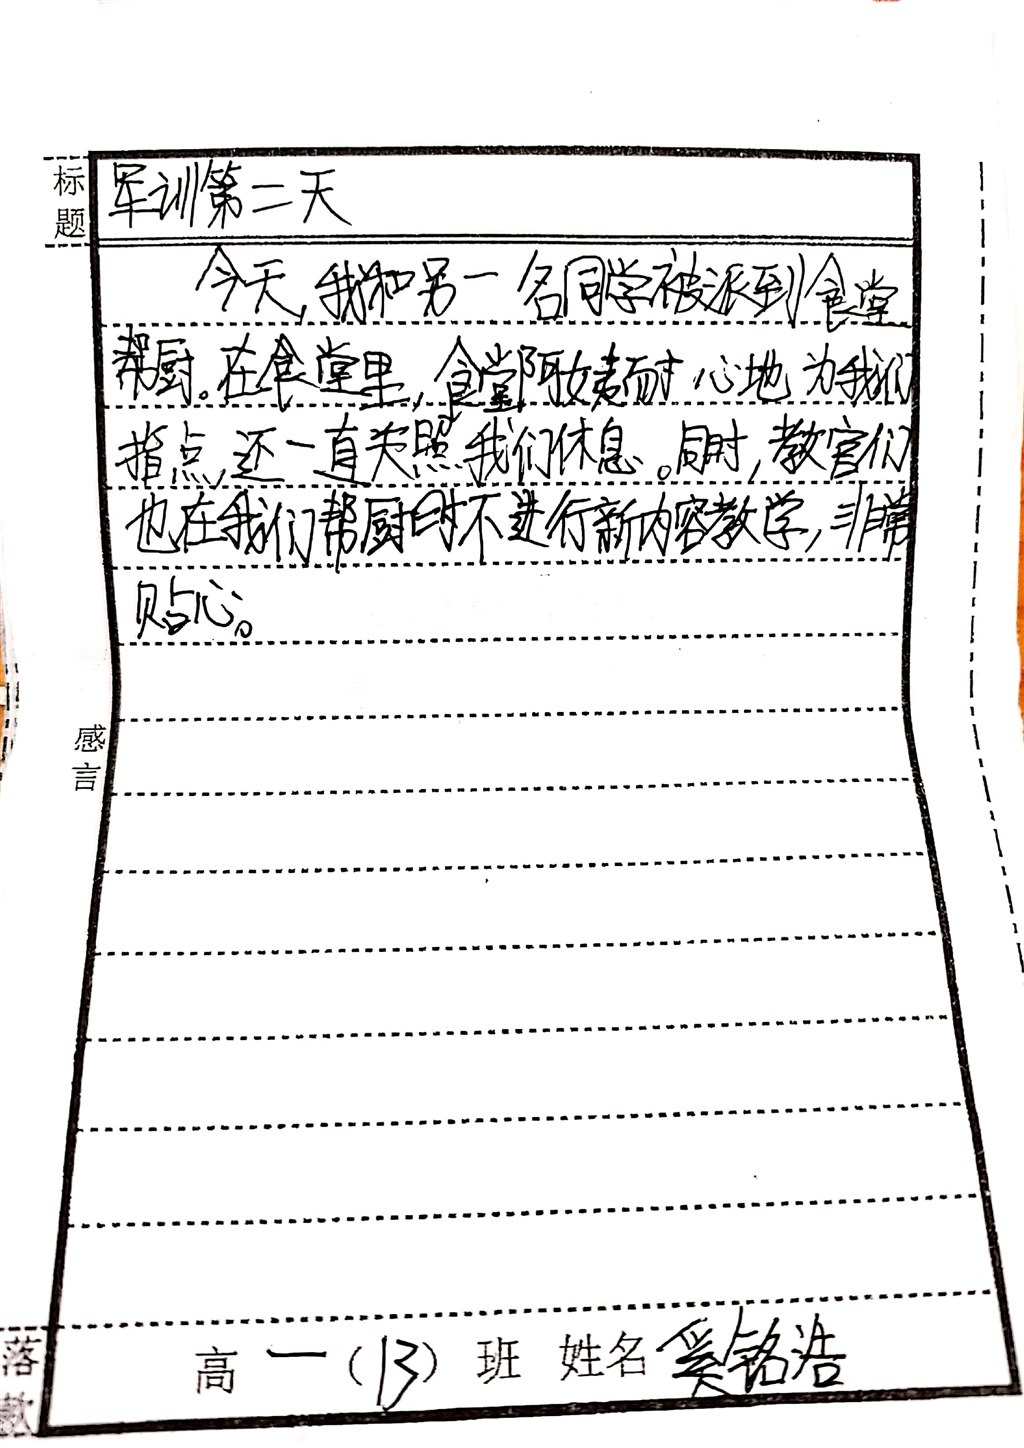 标题
军训第二天
今天,我和另一名同学被派到食堂
帮厨。在食堂里,食堂阿姨耐心地为我们
指点,还一直关照我们休息。同时,教官们
也在我们帮厨时不进行新内容教学,非常
贴心。
感言
落款
高一(13)班 姓名 奚铭浩